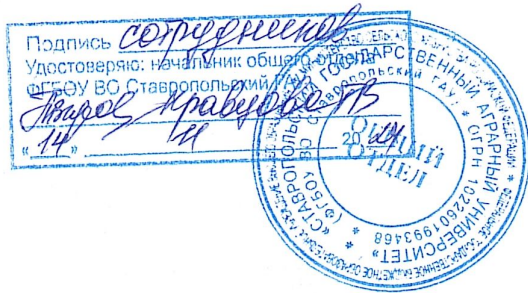 Подпись сотрудников
Удостоверяю: начальник общего отдела
ФГБОУ ВО Ставропольский
Кравцова
«14» 11 20 24
«СТАВРОПОЛЬСКИЙ ГОСУДАРСТВЕННЫЙ АГРАРНЫЙ УНИВЕРСИТЕТ»
(ФГБОУ ВО СТАВРОПОЛЬСКИЙ ГАУ) * ОГРН 1022601993468 *
ОБЩИЙ
ОТДЕЛ